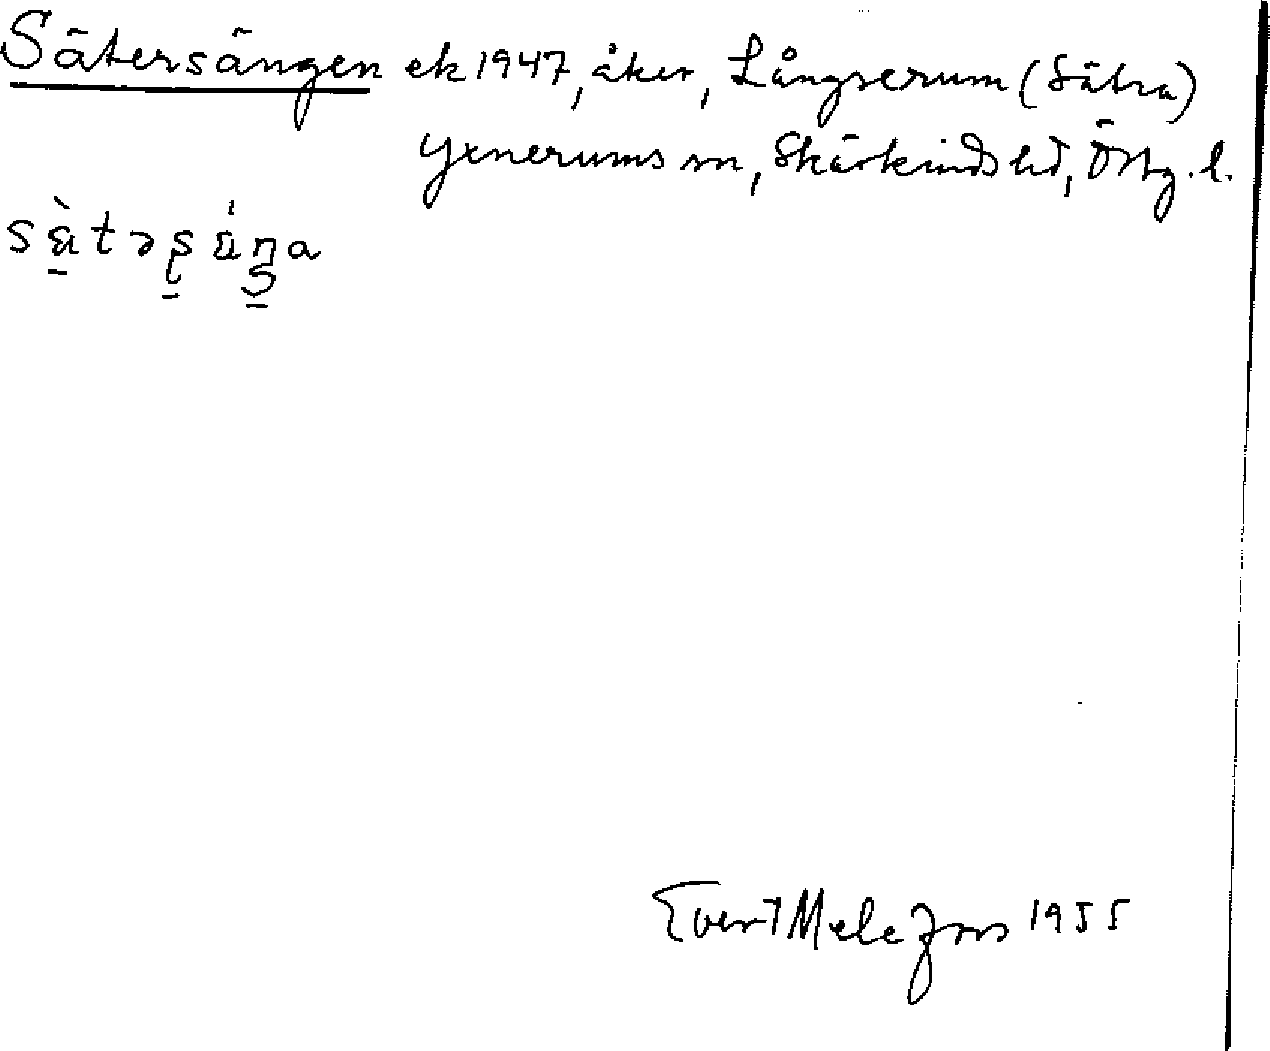 Sätersängen ek 1947, åker, Långserum (Sätra)
Yxnerums sn, Skärkinds hd, Östg. l.
Evert Melefors 1955